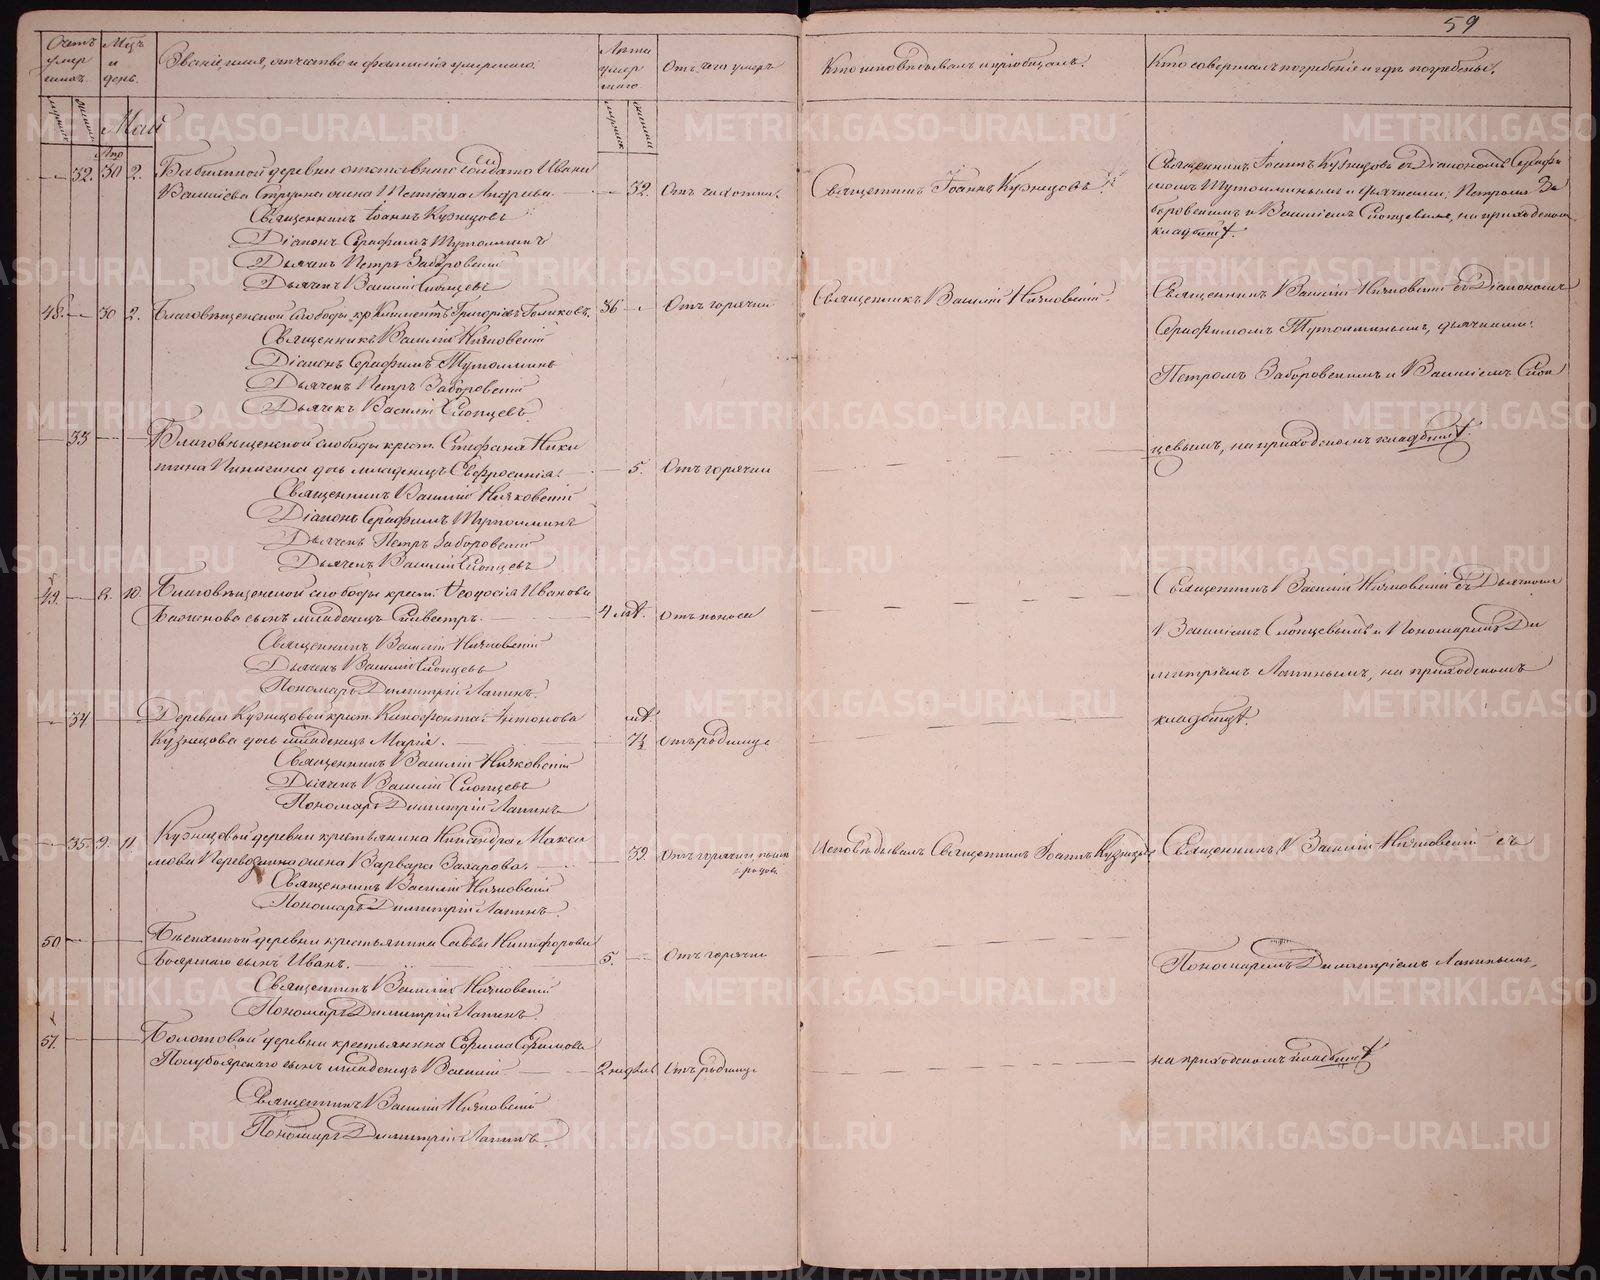 59
Счетъ умершихъ.
Мцъ и день.
Званіе, имя, отчество и фамилія умершаго.
Лѣта умершаго
Отъ чего умеръ
Кто исповѣдывалъ и пріобщалъ.
Кто совершалъ погребеніе и гдѣ погребены.
Май
Апр
32. 30 2.
отставнаго солдата Ивана
жена Андреева
32. Отъ чахотки.
Священникъ Іоаннъ Кузнецовъ
Священникъ Іоаннъ Кузнецовъ съ Діакономъ Серафи
момъ Тутолминымъ и дьячками: Петромъ За
боровскимъ и Василіемъ Слопцевымъ, на приходскомъ
кладбищѣ.
Священникъ Іоаннъ Кузнецовъ
Діаконъ Серафимъ Тутолминъ
Дьячекъ Петръ Заборовскій
Дьячекъ Василій Слопцевъ
48. 30 2. Благовѣщенской слободы кр. Климентъ Григорьевъ Голиковъ.
36 Отъ горячки
Священникъ Василій Нижковскій.
Священникъ Василій Нижковскій съ Діакономъ
Серафимомъ Тутолминымъ, дьячками:
Петромъ Заборовскимъ и Василіемъ Слоп
цевымъ, на приходскомъ кладбищѣ.
Священникъ Василій Нижковскій
Діаконъ Серафимъ Тутолминъ
Дьячекъ Петръ Заборовскій
Дьячекъ Василій Слопцевъ.
33 Благовѣщенской слободы крест. Стефана Ники
тина дочь младенецъ Евфросинія.
5. Отъ горячки
Священникъ Василій Нижковскій
Діаконъ Серафимъ Тутолминъ
Дьячекъ Петръ Заборовскій
Дьячекъ Василій Слопцевъ
49. 8. 10. Благовѣщенской слободы крест. Ѳеодосія Иванова
Баженова сынъ младенецъ Сильвестръ.
4 мѣ. Отъ поноса
Священникъ Василій Нижковскій съ Дьячкомъ
Василіемъ Слопцевымъ и Пономаремъ Ди
митріемъ Лапинымъ, на приходскомъ
кладбищѣ.
Священникъ Василій Нижковскій
Дьячекъ Василій Слопцевъ
Пономарь Димитрій Лапинъ.
34 Деревни Кузнецовой крест. Ксенофонта Антонова
Кузнецова дочь младенецъ Марія.
мѣ.
7½ Отъ родимца
Священникъ Василій Нижковскій
Дьячекъ Василій Слопцевъ
Пономарь Димитрій Лапинъ
35. 9. 11. Кузнецовой деревни крестьянина Никандра Макси
мова жена Варвара Захарова.
39. Отъ горячки, послѣ
родовъ
Исповѣдывалъ Священникъ Іоаннъ Кузнецовъ
Священникъ Василій Нижковскій съ
Пономаремъ Димитріемъ Лапинымъ,
на приходскомъ кладбищѣ
Священникъ Василій Нижковскій
Пономарь Димитрій Лапинъ.
50 деревни крестьянина Саввы Никифорова
Боярскаго сынъ Иванъ.
5. Отъ горячки
Священникъ Василій Нижковскій
Пономарь Димитрій Лапинъ.
51. Болотовой деревни крестьянина
Полубоярскаго сынъ младенецъ Василій
2 недѣль Отъ родимца
Священникъ Василій Нижковскій
Пономарь Димитрій Лапинъ.
METRIKI.GASO-URAL.RU